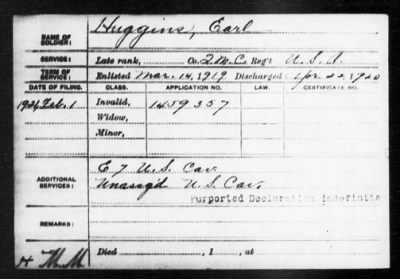 Huggins, Earl
NAME OF
SOLDIER:
SERVICE: Late rank, Co. Q.M.C. Reg't U.S.A.
TERM OF
SERVICE: Enlisted Mar. 14, 1919 Discharged Apr. 22, 1920
DATE OF FILING. CLASS. APPLICATION NO. LAW. CERTIFICATE NO.
1926 Feb. 1 Invalid, 1459357
Widow,
Minor,
E 7 U.S. Cav.
ADDITIONAL
SERVICES: Unassg'd U.S. Cav.
Purported Declaration indefinite
REMARKS:
Died , 1 , at